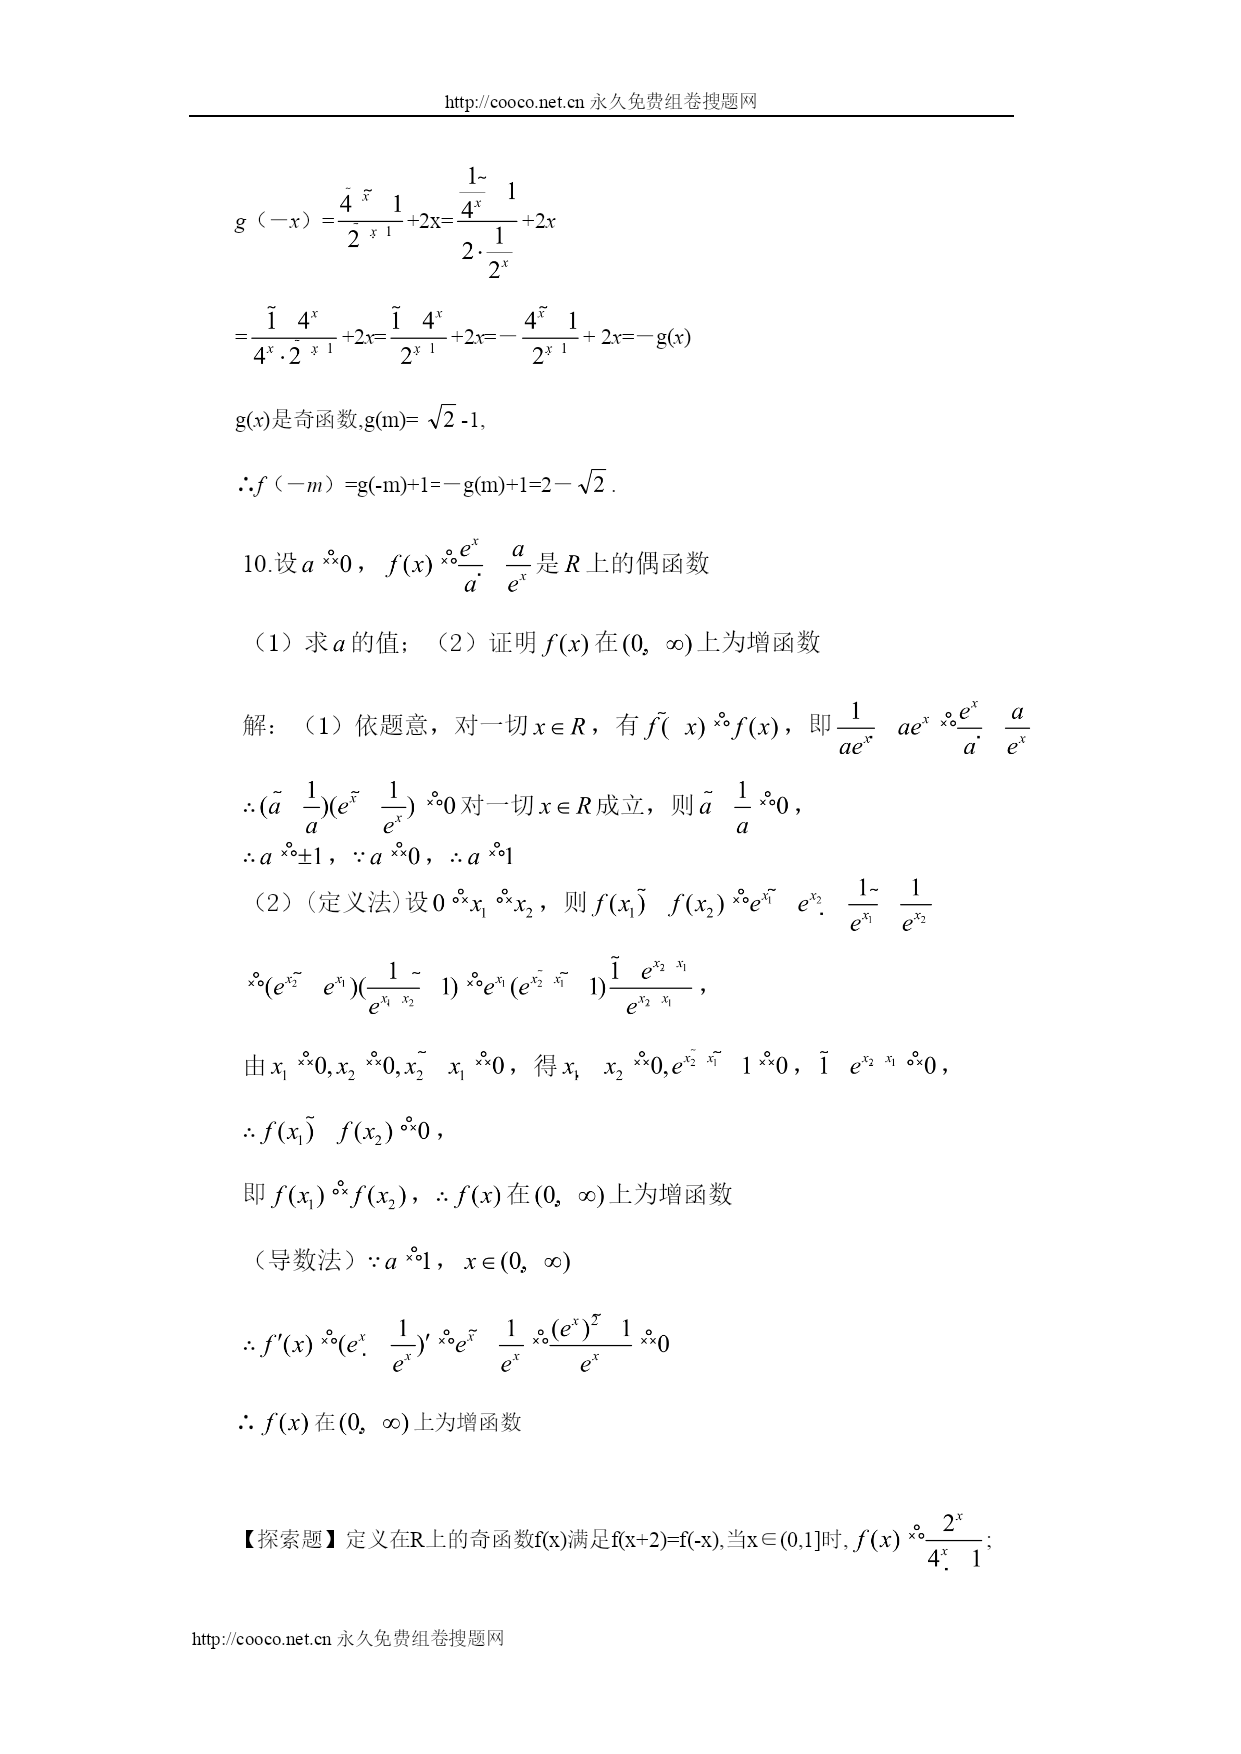 http://cooco.net.cn 永久免费组卷搜题网
g（－x）=\frac{4^{-x}-1}{2^{-x+1}}+2x=\frac{\frac{1}{4^x}-1}{2·\frac{1}{2^x}}+2x
=\frac{1-4^x}{4^x·2^{-x+1}}+2x=\frac{1-4^x}{2^{x+1}}+2x=－\frac{4^x-1}{2^{x+1}}+ 2x=－g(x)
g(x)是奇函数,g(m)= √2 -1,
∴f（－m）=g(-m)+1=－g(m)+1=2－√2 .
10.设 a>0， f(x)=\frac{e^x}{a}+\frac{a}{e^x} 是 R 上的偶函数
（1）求 a 的值；（2）证明 f(x) 在 (0,+∞) 上为增函数
解：（1）依题意，对一切 x∈R，有 f(-x)=f(x)，即 \frac{1}{ae^x}+ae^x=\frac{e^x}{a}+\frac{a}{e^x}
∴(a-\frac{1}{a})(e^x-\frac{1}{e^x})=0 对一切 x∈R 成立，则 a-\frac{1}{a}=0，
∴a=±1，∵a>0，∴a=1
（2）(定义法)设 0<x₁<x₂，则 f(x₁)-f(x₂)=e^{x₁}-e^{x₂}+\frac{1}{e^{x₁}}-\frac{1}{e^{x₂}}
=(e^{x₂}-e^{x₁})(\frac{1}{e^{x₁+x₂}}-1)=e^{x₁}(e^{x₂-x₁}-1)\frac{1-e^{x₂+x₁}}{e^{x₂+x₁}}，
由 x₁>0,x₂>0,x₂-x₁>0，得 x₁+x₂>0,e^{x₂-x₁}-1>0，1-e^{x₂+x₁}<0，
∴f(x₁)-f(x₂)<0，
即 f(x₁)<f(x₂)，∴f(x) 在 (0,+∞) 上为增函数
（导数法）∵a=1， x∈(0,+∞)
∴f′(x)=(e^x+\frac{1}{e^x})′=e^x-\frac{1}{e^x}=\frac{(e^x)^2-1}{e^x}>0
∴ f(x) 在 (0,+∞) 上为增函数
【探索题】定义在R上的奇函数f(x)满足f(x+2)=f(-x),当x∈(0,1]时, f(x)=\frac{2^x}{4^x+1};
http://cooco.net.cn 永久免费组卷搜题网